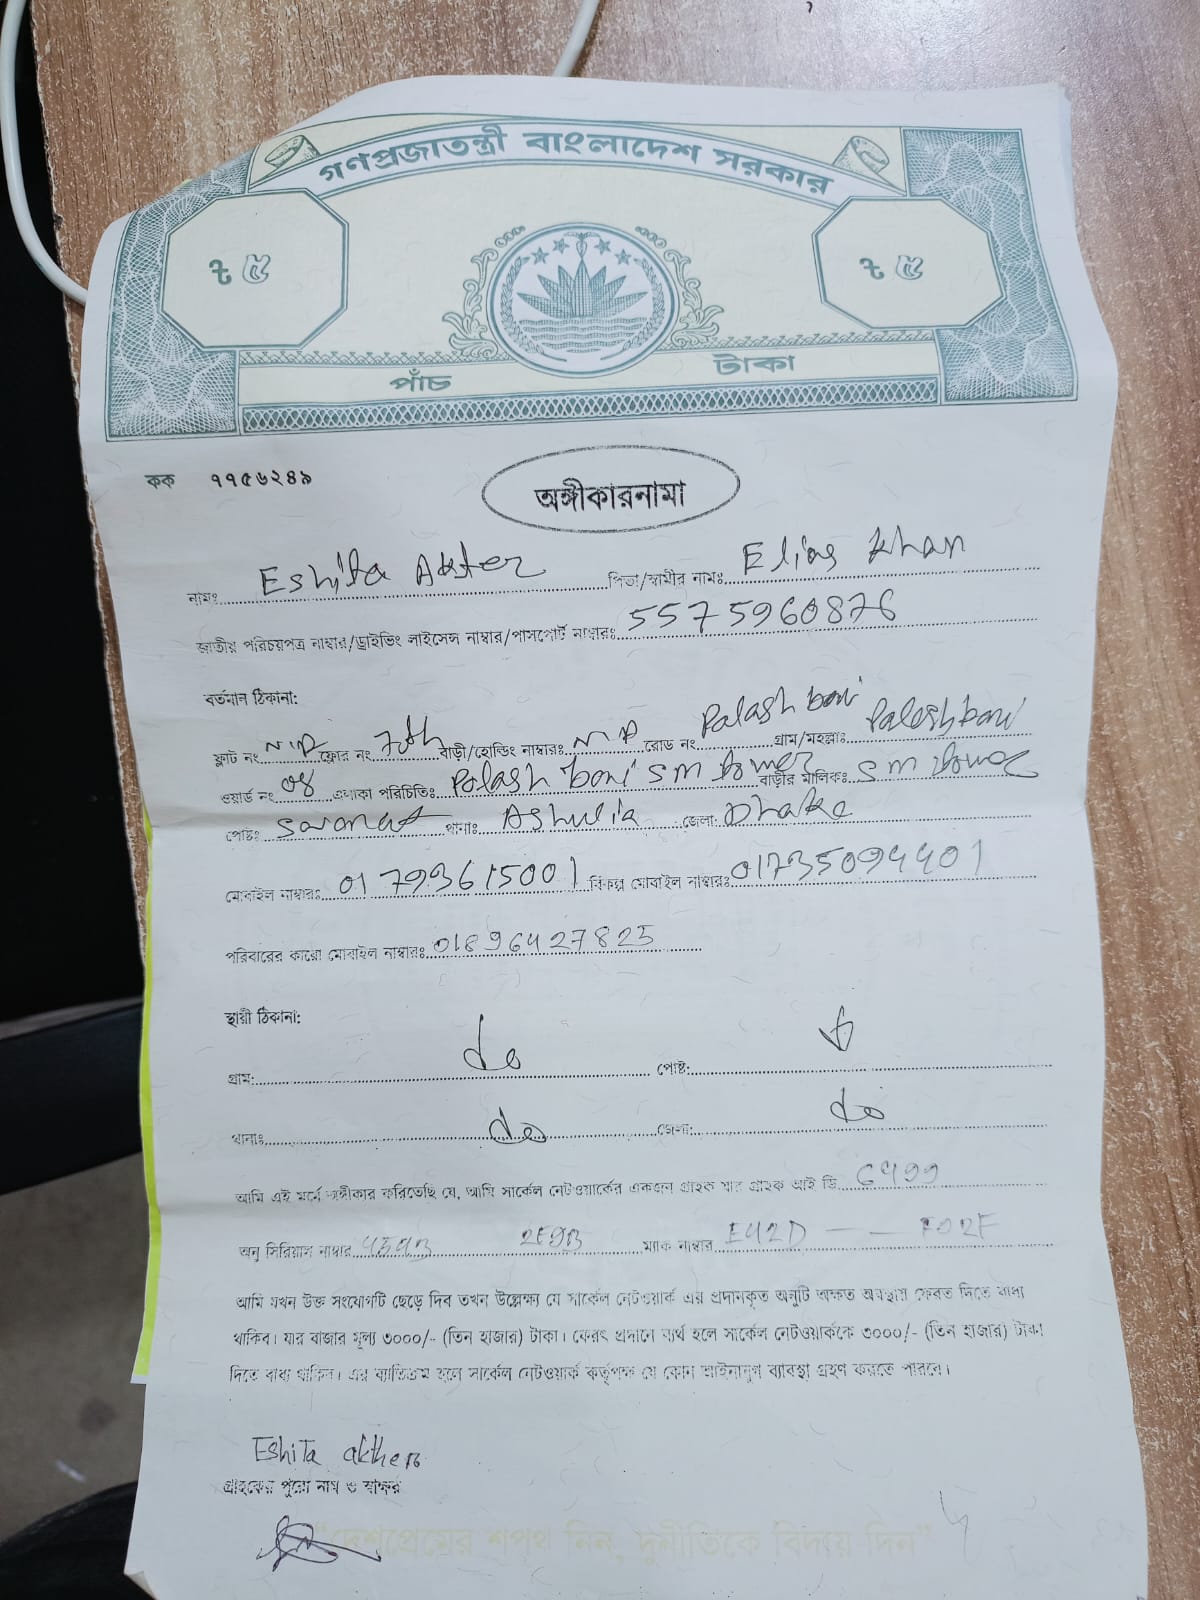 গণপ্রজাতন্ত্রী বাংলাদেশ সরকার
৳ ৫ ৳ ৫
পাঁচ টাকা
কক ৭৭৫৬২৪৯
অঙ্গীকারনামা
নামঃ Eshita Akter পিতা/স্বামীর নামঃ Elias Khan
জাতীয় পরিচয়পত্র নাম্বার/ড্রাইভিং লাইসেন্স নাম্বার/পাসপোর্ট নাম্বারঃ 5575960876
বর্তমান ঠিকানা:
ফ্লাট নং N/A ফ্লোর নং 7th বাড়ী/হোল্ডিং নাম্বারঃ N/A রোড নং Palash bari গ্রাম/মহল্লাঃ Palashbari
ওয়ার্ড নং 08 এলাকা পরিচিতিঃ Palash bari SM tower বাড়ীর মালিকঃ SM tower
পোষ্টঃ থানাঃ Ashulia জেলা: Dhaka
মোবাইল নাম্বারঃ 01793615001 বিকল্প মোবাইল নাম্বারঃ 01735094401
পরিবারের কারো মোবাইল নাম্বারঃ 01896427825
স্থায়ী ঠিকানা:
গ্রাম: do পোষ্ট:
থানাঃ do জেলা: do
আমি এই মর্মে অঙ্গীকার করিতেছি যে, আমি সার্কেল নেটওয়ার্কের একজন গ্রাহক যার গ্রাহক আই ডি
অনু সিরিয়াল নাম্বার ম্যাক নাম্বার E42D — F02F
আমি যখন উক্ত সংযোগটি ছেড়ে দিব তখন উল্লেক্ষ্য যে সার্কেল নেটওয়ার্ক এর প্রদানকৃত অনুটি অক্ষত অবস্থায় ফেরত দিতে বাধ্য
থাকিব। যার বাজার মূল্য ৩০০০/- (তিন হাজার) টাকা। ফেরৎ প্রদানে ব্যর্থ হলে সার্কেল নেটওয়ার্ককে ৩০০০/- (তিন হাজার) টাকা
দিতে বাধ্য থাকিব। এর ব্যতিক্রম হলে সার্কেল নেটওয়ার্ক কর্তৃপক্ষ যে কোন আইনানুগ ব্যাবস্থা গ্রহণ করতে পারবে।
Eshita akther
গ্রাহকের পুরো নাম ও স্বাক্ষর
"দেশপ্রেমের শপথ নিন, দুর্নীতিকে বিদায় দিন"